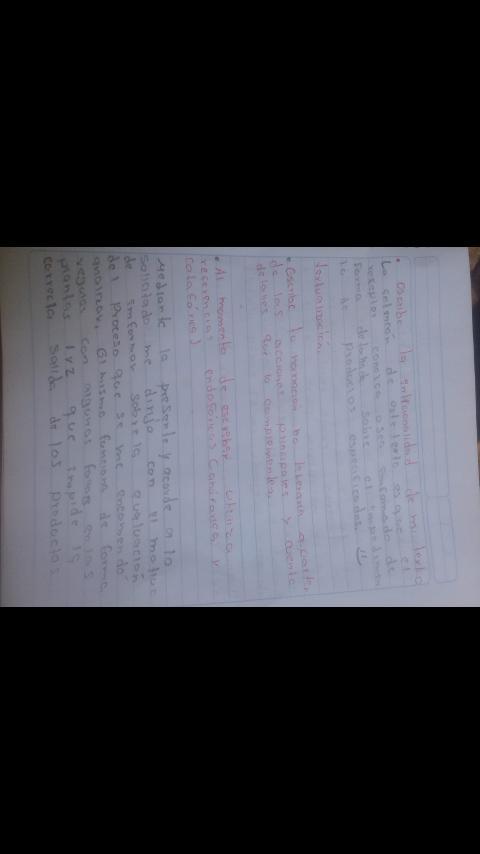 • Escribe la intencionalidad de mi texto
La intención de este texto es que el
receptor conozca o sea informado de
forma detallada sobre el impedimen
to de productos especificados.
textualización.
• Escribe la narración no deberán
de las acciones principales y
detalles que la complementen.
• Al momento de escribir utiliza
referencias endofóricas (anáforica y
catafórica)
Mediante la presente y acorde a lo
solicitado me dirijo con el motivo
de informar sobre la evaluación
del proceso que se me encomendó
analizar. El mismo funciona de forma
regular con algunas fallas en las
plantas 1 y 2 que impide la
correcta salida de los productos